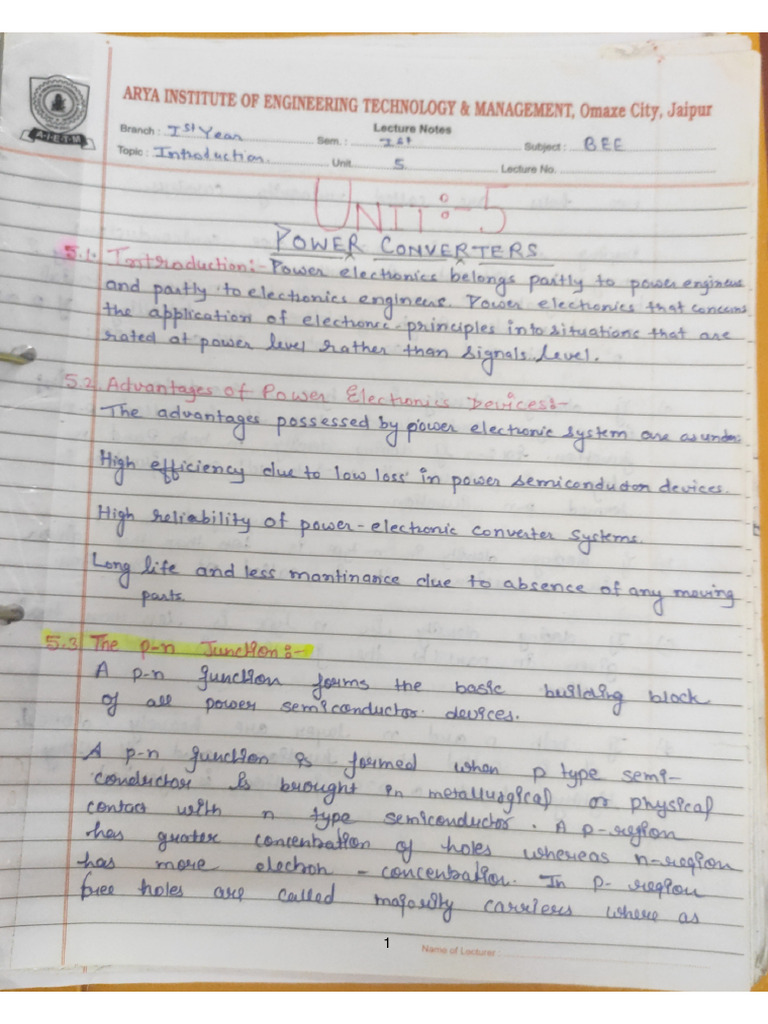 ARYA INSTITUTE OF ENGINEERING TECHNOLOGY & MANAGEMENT, Omaxe City, Jaipur
A.I.E.T.M
Lecture Notes
Branch : Ist Year Sem. : Ist Subject : BEE
Topic : Introduction. Unit 5 Lecture No.
UNIT:-5
POWER CONVERTERS
5.1. Introduction:- Power electronics belongs partly to power engineers
and partly to electronics engineers. Power electronics that concerns
the application of electronic principles into situations that are
rated at power level rather than signals level.
5.2. Advantages of Power Electronics Devices:-
The advantages possessed by power electronic system are as under.
High efficiency due to low loss in power semiconductor devices.
High reliability of power-electronic converter systems.
Long life and less mantinance due to absence of any moving
parts.
5.3 The p-n Junction:-
A p-n junction forms the basic building block
of all power semiconductor devices.
A p-n junction is formed when p type semi-
conductor is brought in metallurgical or physical
contact with n type semiconductor. A p-region
has greater concentration of holes whereas n-region
has more electron - concentration. In p- region
free holes are called majority carriers where as
1
Name of Lecturer